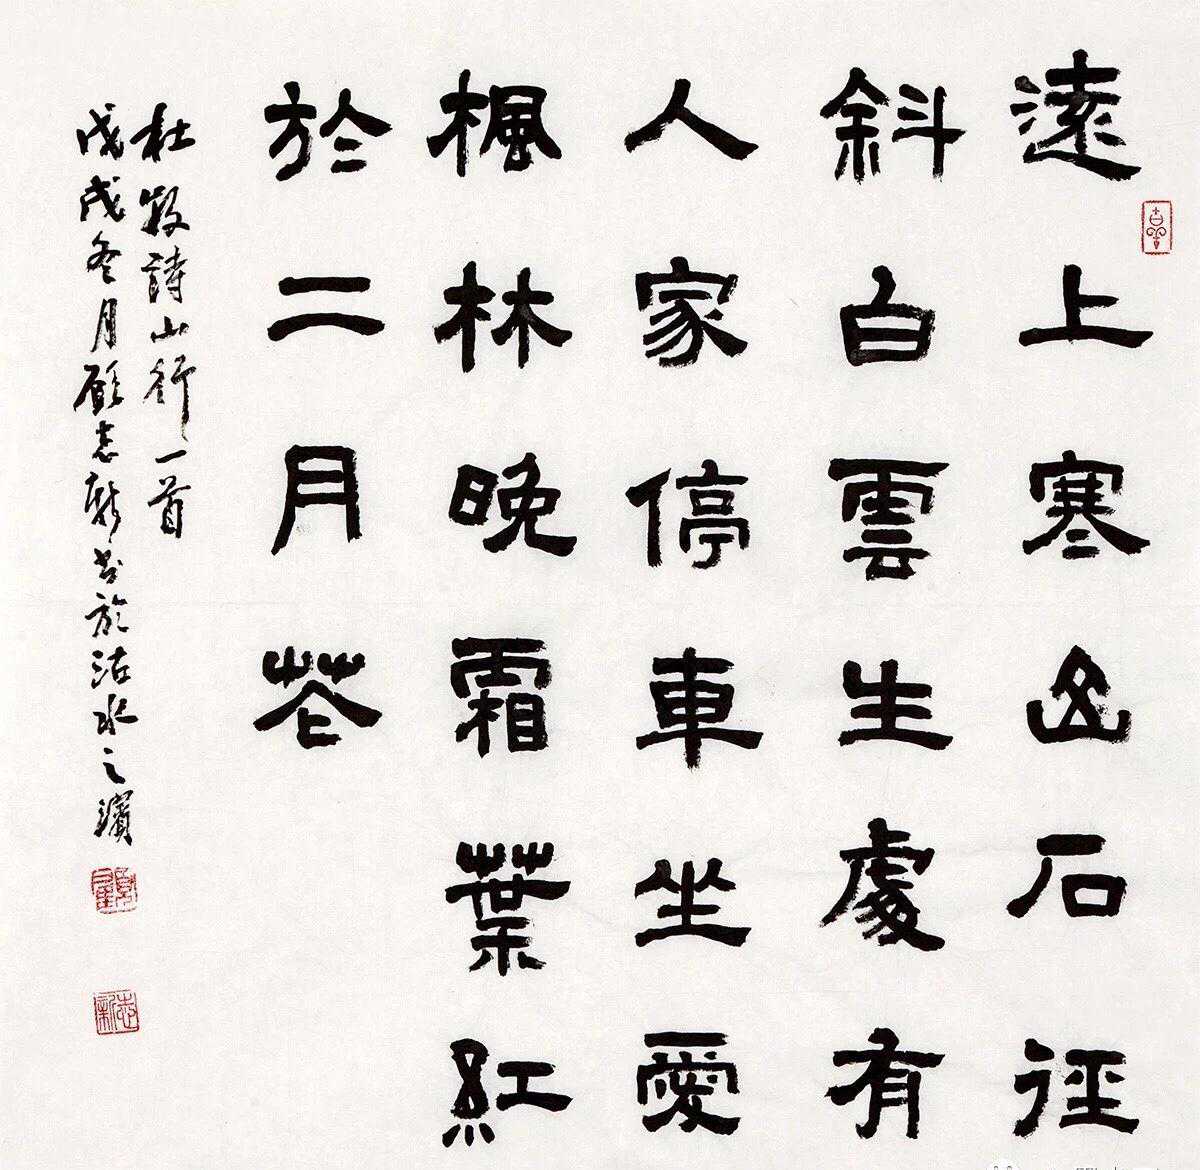 遠上寒山石徑
斜白雲生處有
人家停車坐愛
楓林晚霜葉紅
於二月花
杜牧詩山行一首
戊戌冬月顧志新書於沽水之濱
顧
志新